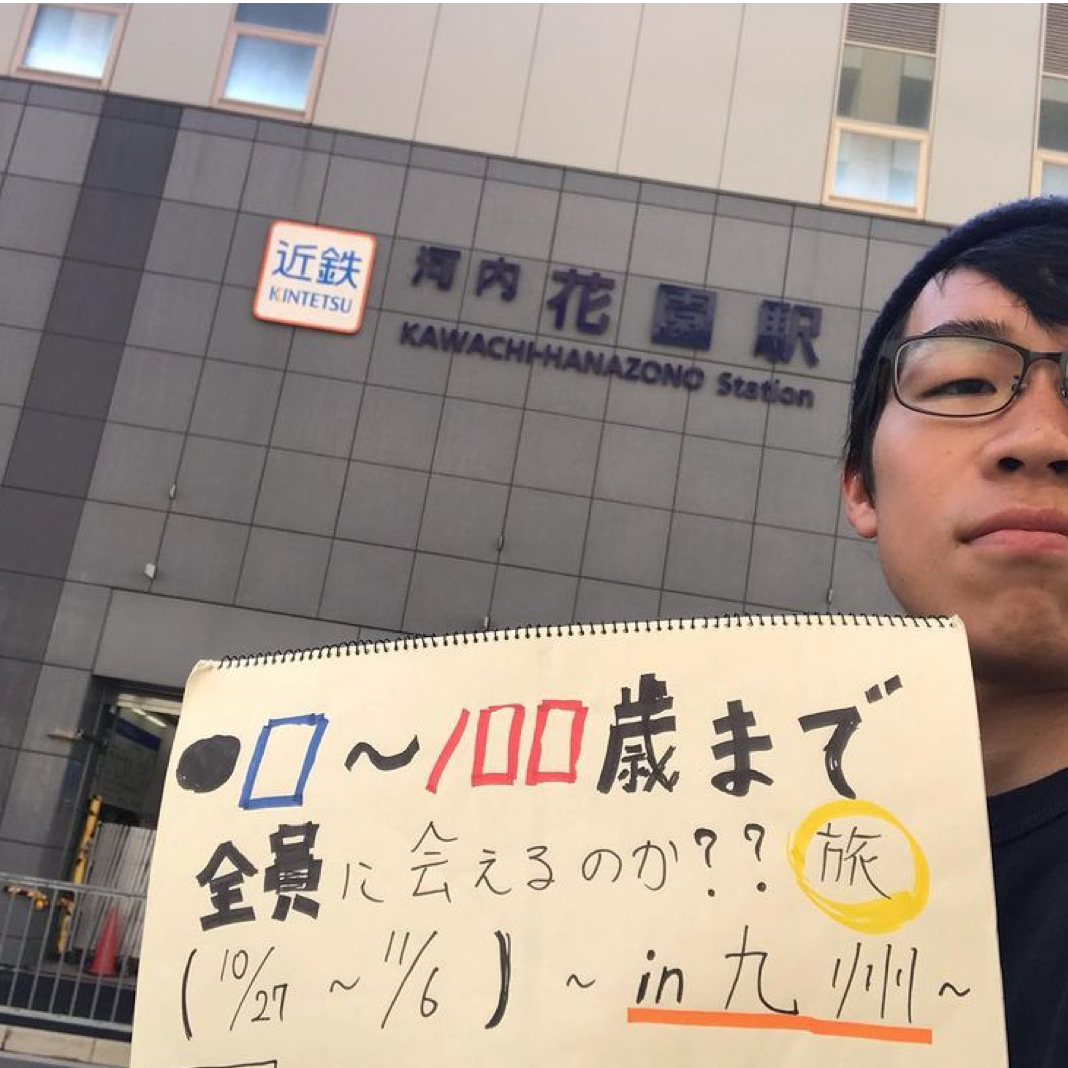 近鉄
KINTETSU
河内花園駅
KAWACHI-HANAZONO Station
●0～100歳まで
全員に会えるのか？？旅
(10/27～11/6)～in九州～